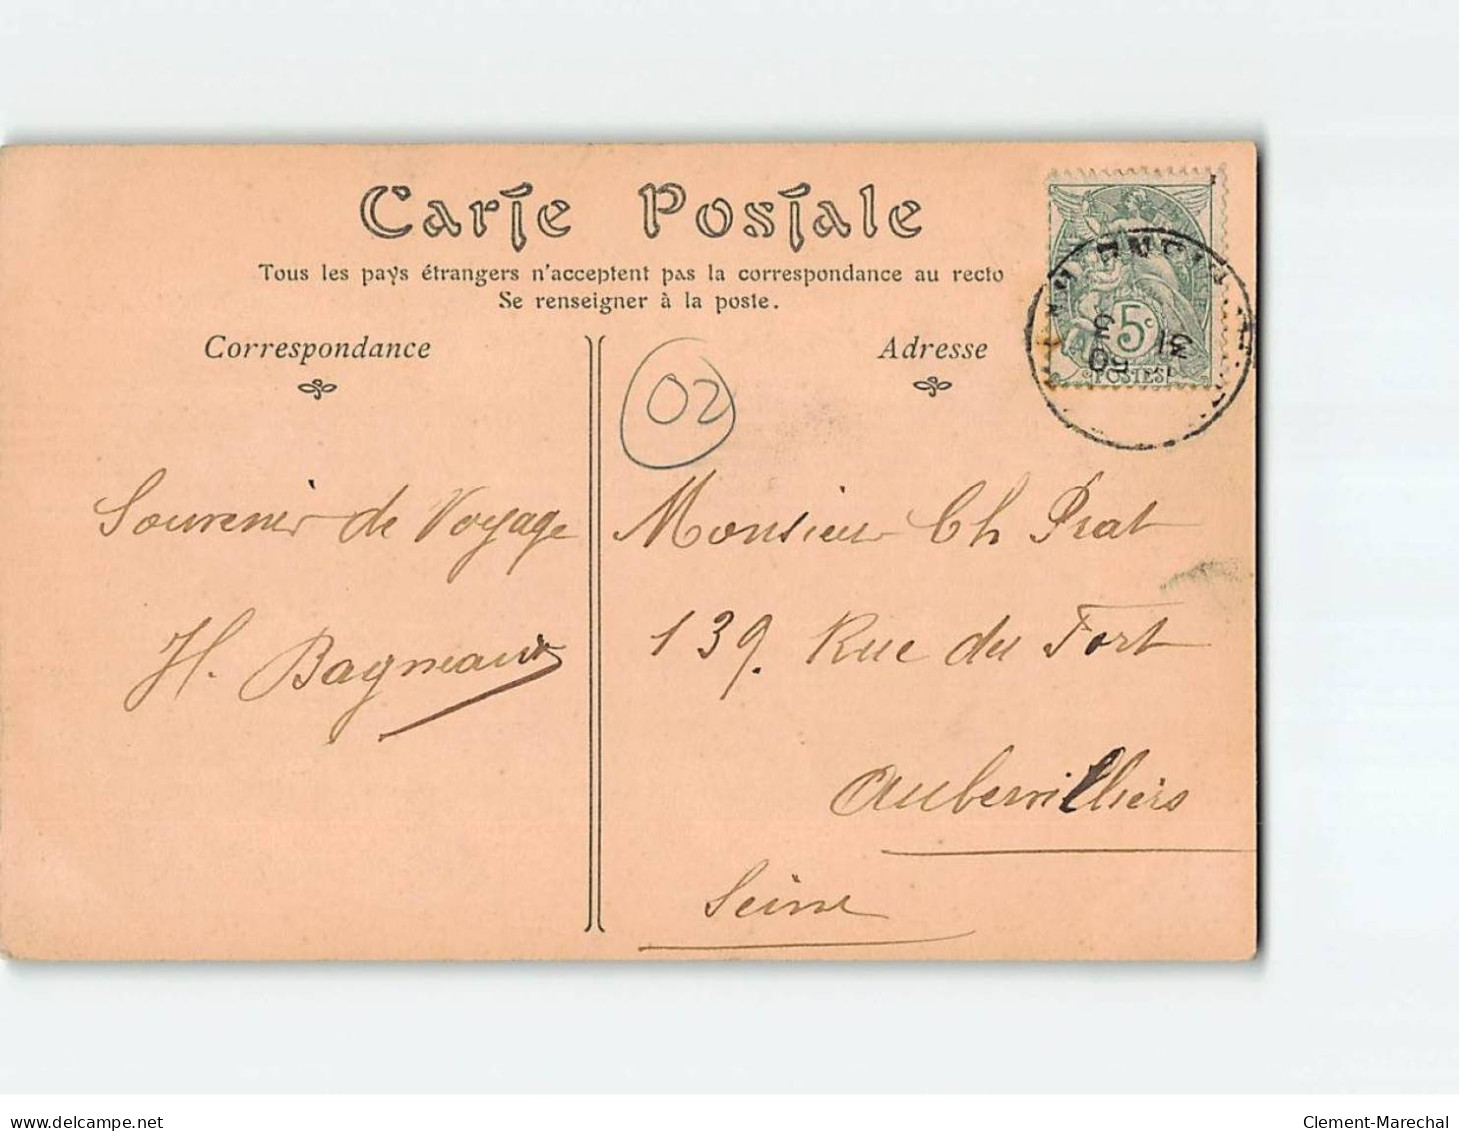 Carte Postale
Tous les pays étrangers n'acceptent pas la correspondance au recto
Se renseigner à la poste.
Correspondance
Adresse
5c
POSTES
31
02
Souvenir de Voyage
H. Bagneaux
Monsieur Ch Prat
139. Rue du Fort
Aubervilliers
Seine
www.delcampe.net
Clement-Marechal